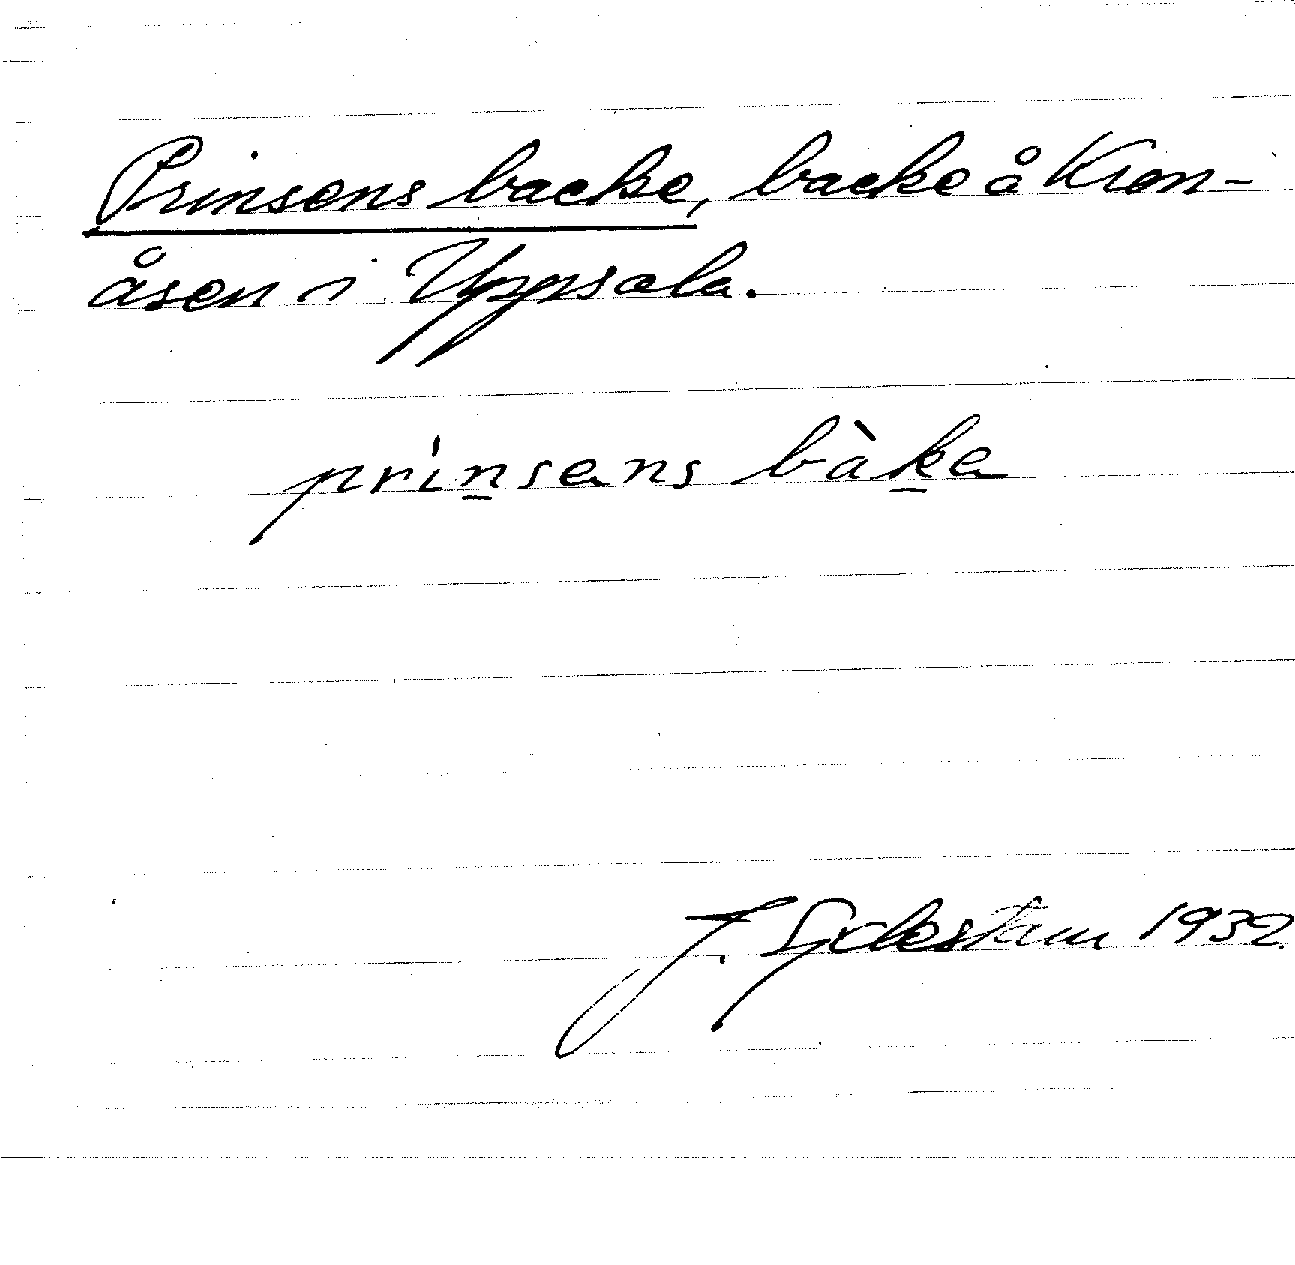 Prinsens backe, backe å Kron-
åsen i Uppsala.
prinsens bàka
J. 1932